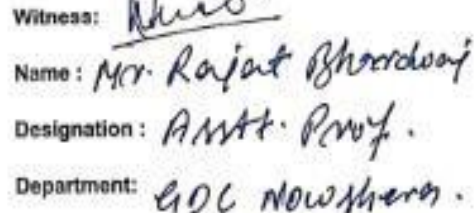 Witness:
Name : Mr. Rajat Bhardwaj
Designation : Asstt. Prof.
Department: GDC Nowshera.